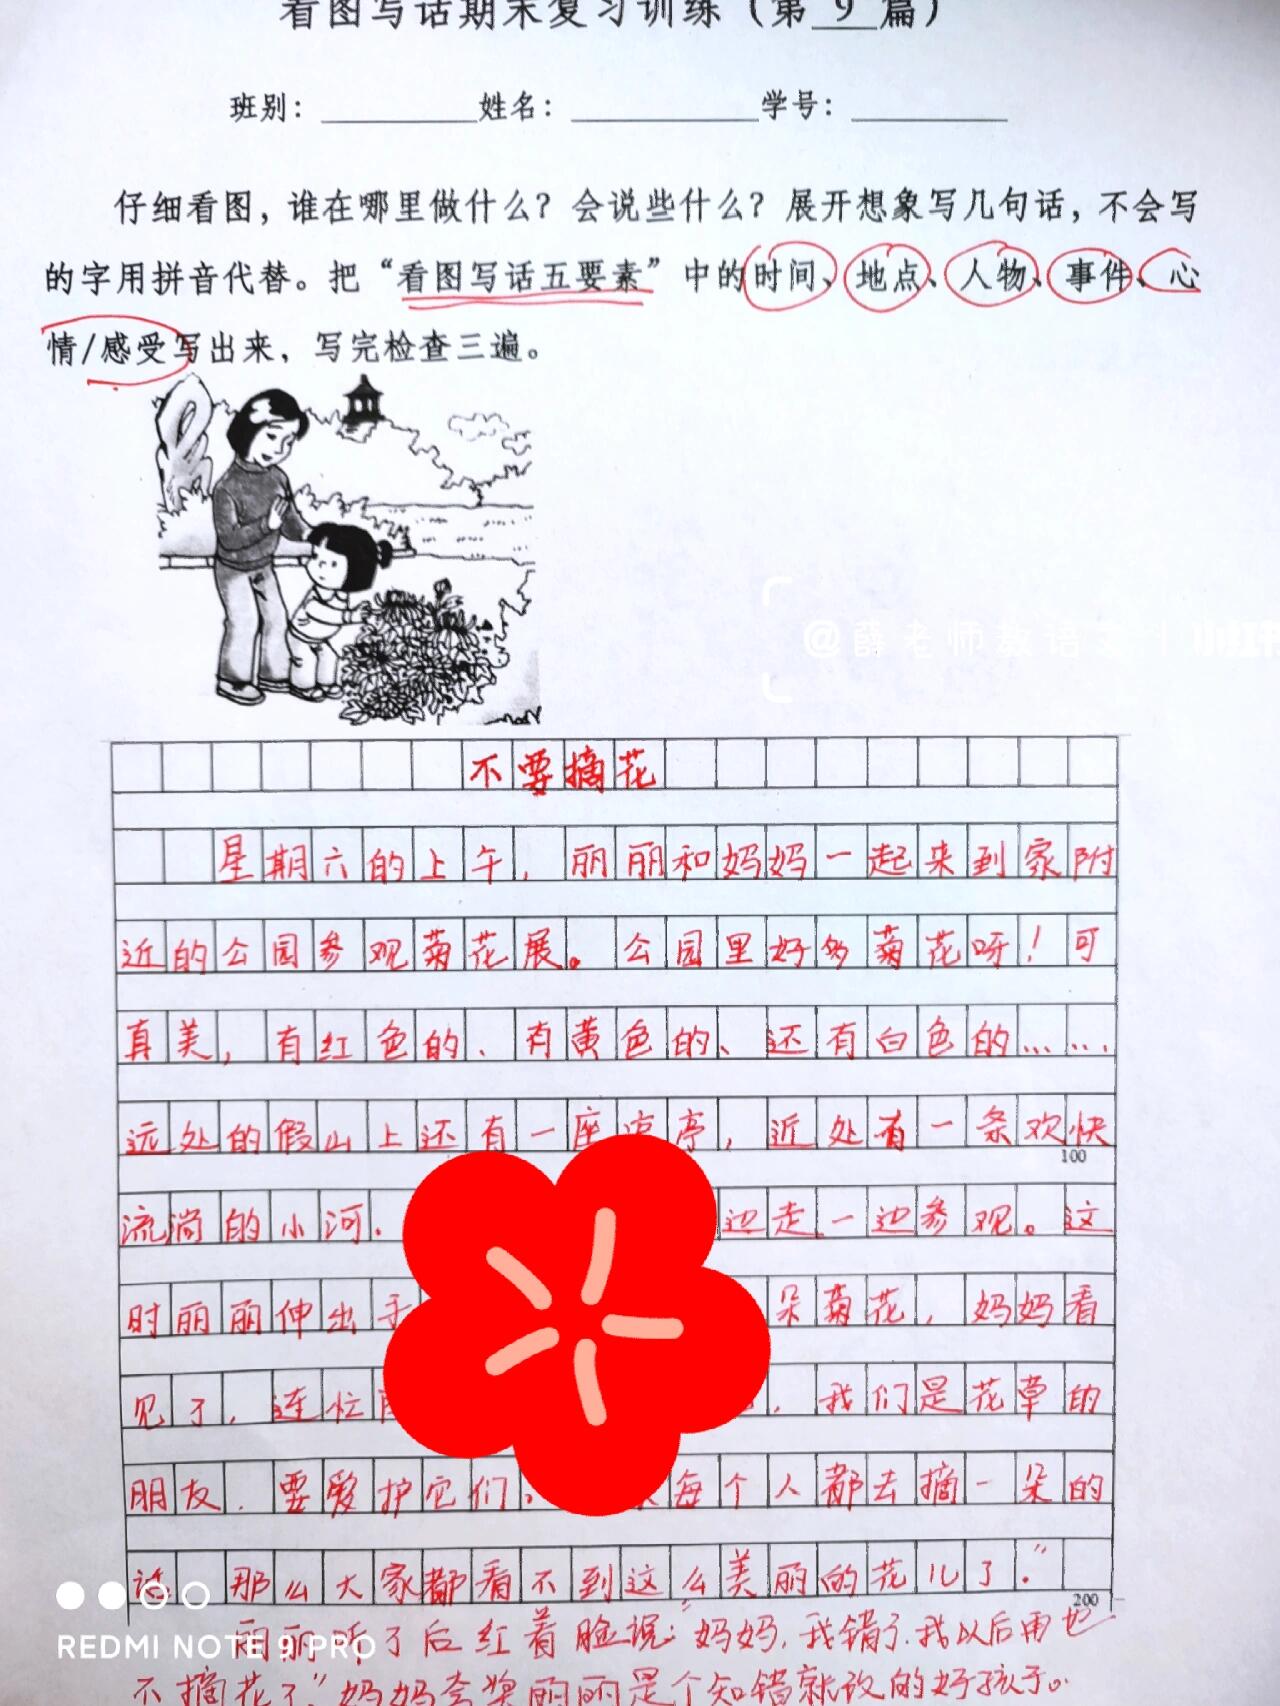 看图写话期末复习训练（第 9 篇）
班别： 姓名： 学号：
仔细看图，谁在哪里做什么？会说些什么？展开想象写几句话，不会写
的字用拼音代替。把“看图写话五要素”中的时间、地点、人物、事件、心
情/感受写出来，写完检查三遍。
@薛老师教语文
不要摘花
星期六的上午，丽丽和妈妈一起来到家附
近的公园参观菊花展。公园里好多菊花呀！可
真美，有红色的、有黄色的、还有白色的……
远处的假山上还有一座凉亭，近处有一条欢快
100
流淌的小河. 边走一边参观。这
时丽丽伸出手 朵菊花，妈妈看
见了，连忙 ，我们是花草的
朋友．要爱护它们。 每个人都去摘一朵的
话，那么大家都看不到这么美丽的花儿了.”
200
丽丽听了后红着脸说：“妈妈，我错了.我以后再也
不摘花了.”妈妈夸奖丽丽是个知错就改的好孩子。
REDMI NOTE 9 PRO